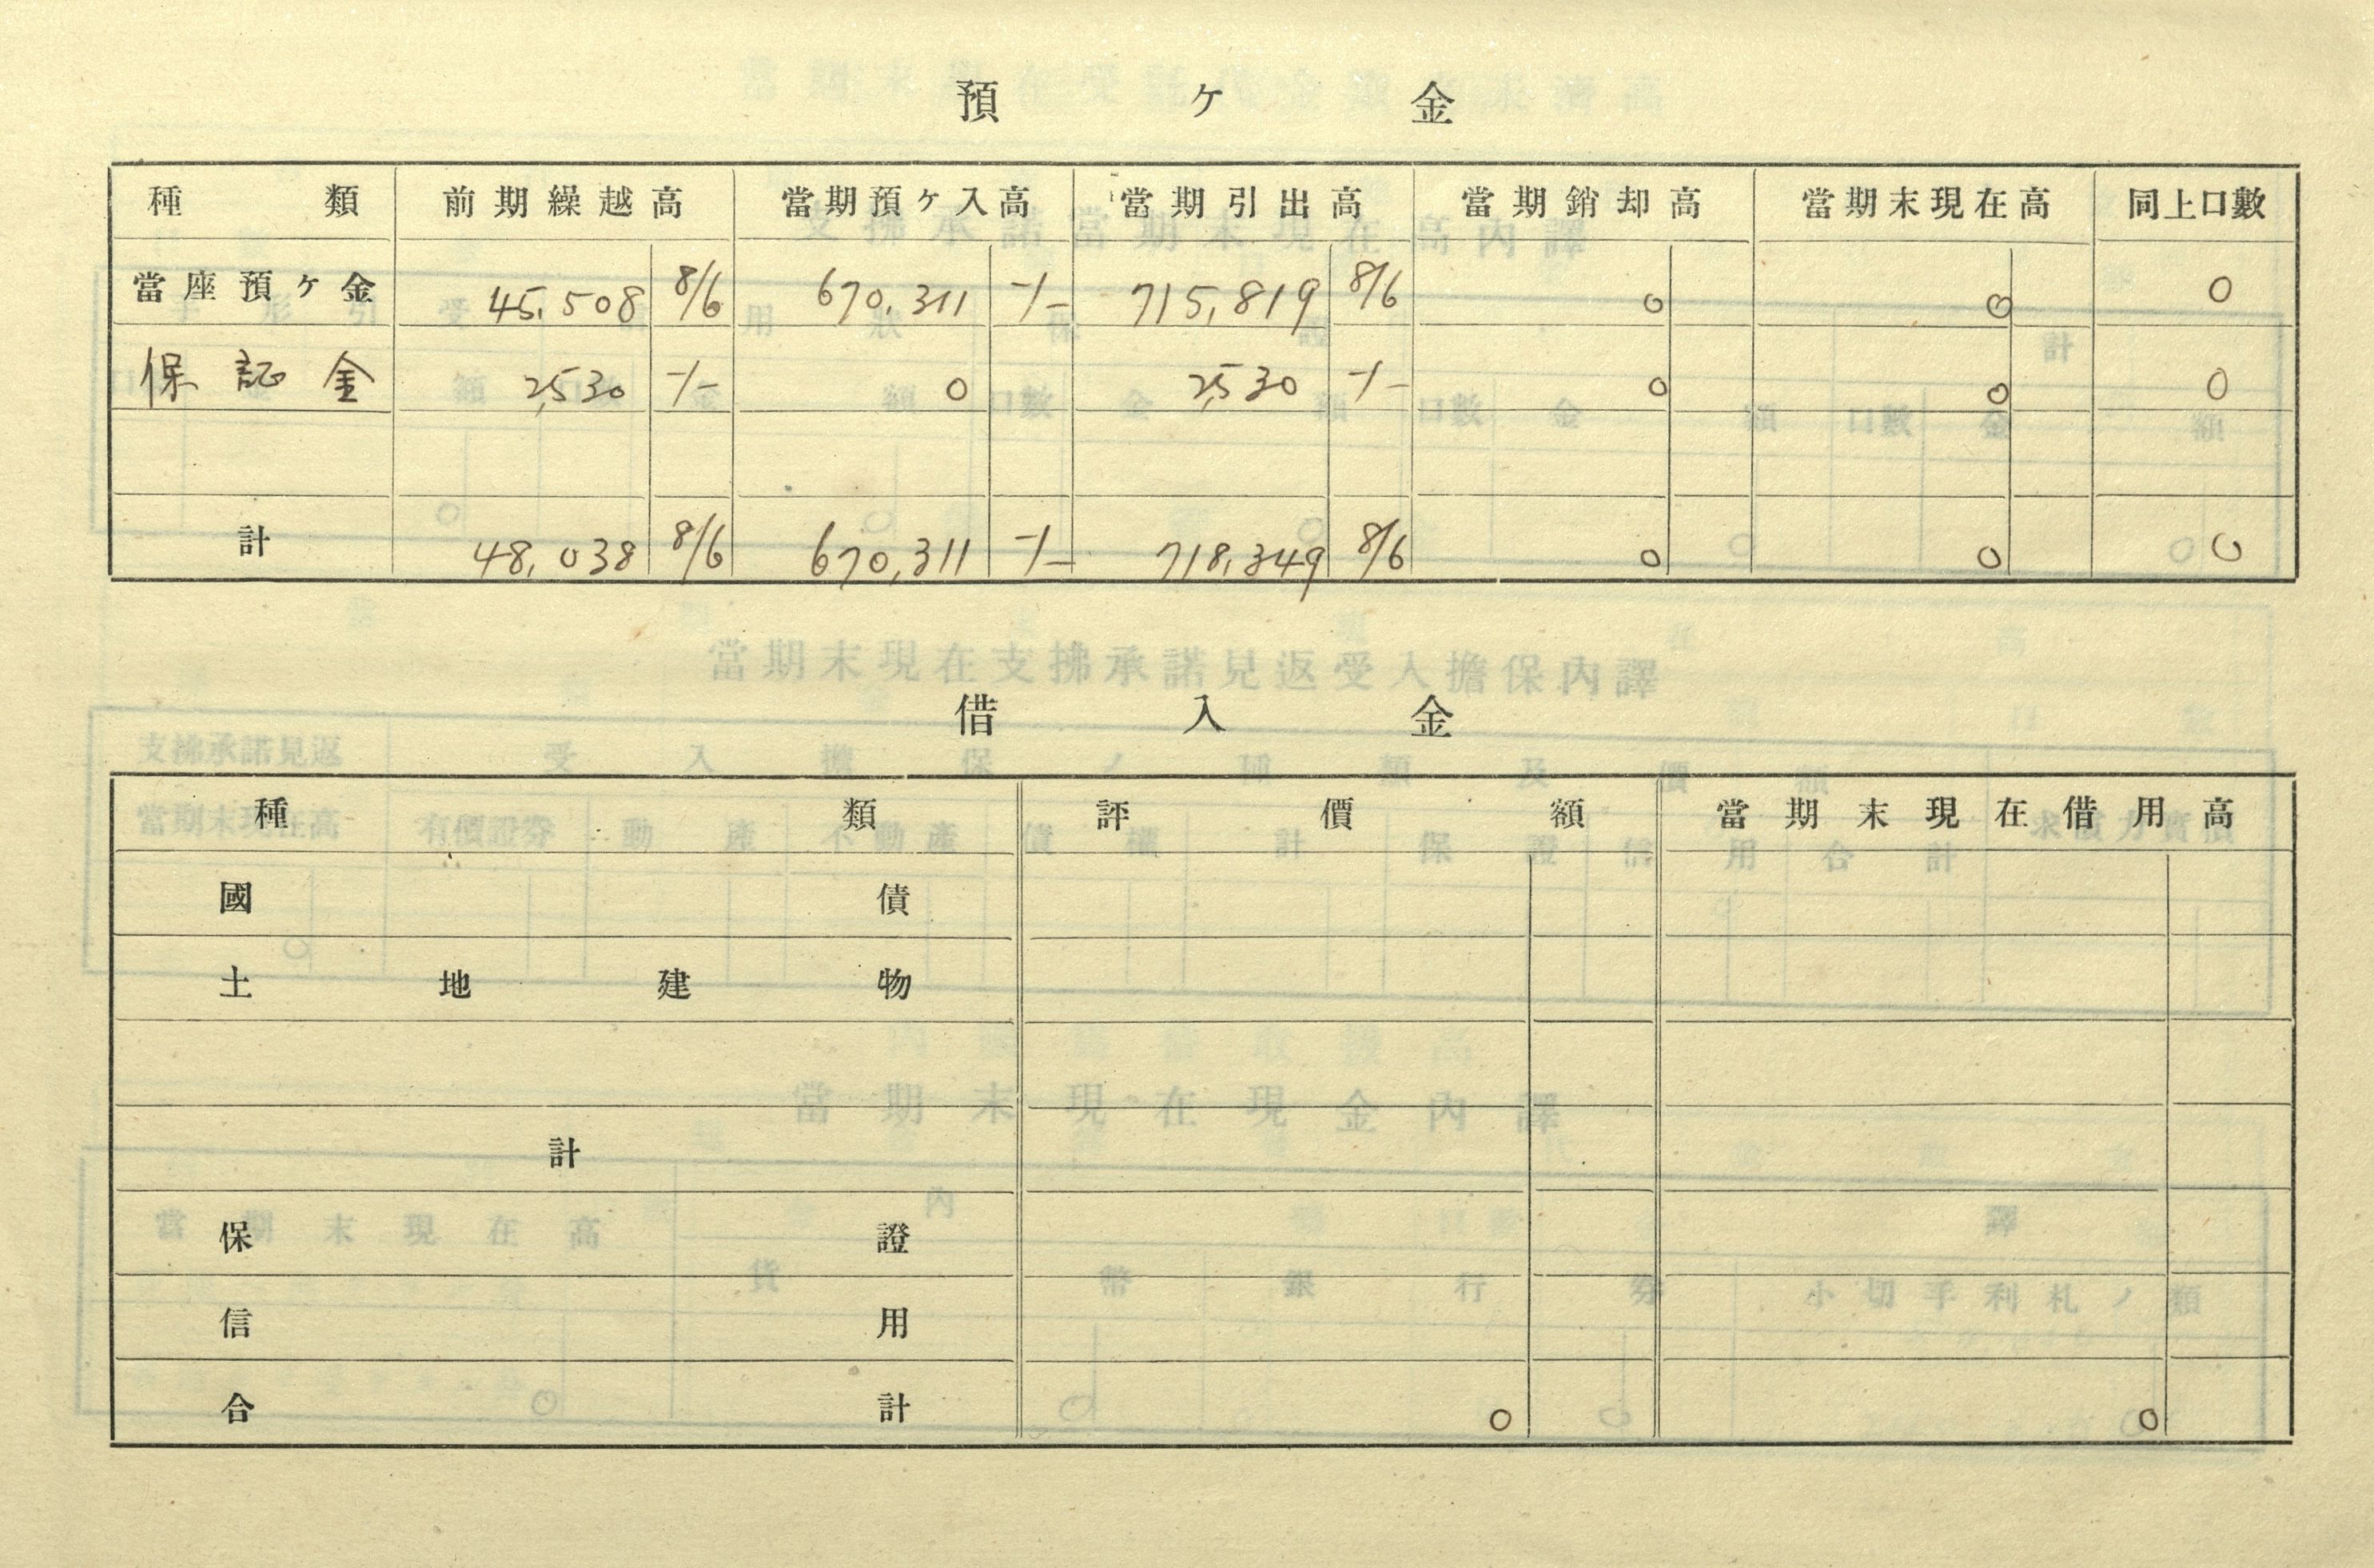 預ケ金
種類 前期繰越高 當期預ケ入高 當期引出高 當期銷却高 當期末現在高 同上口數
當座預ケ金 45,508 8/6 670,311 -/- 715,819 8/6 0 0 0
保証金 2,530 -/- 0 2,530 -/- 0 0 0
計 48,038 8/6 670,311 -/- 718,349 8/6 0 0 0
借入金
種類 評價額 當期末現在借用高
國債
土地建物
計
保證
信用
合計 0 0